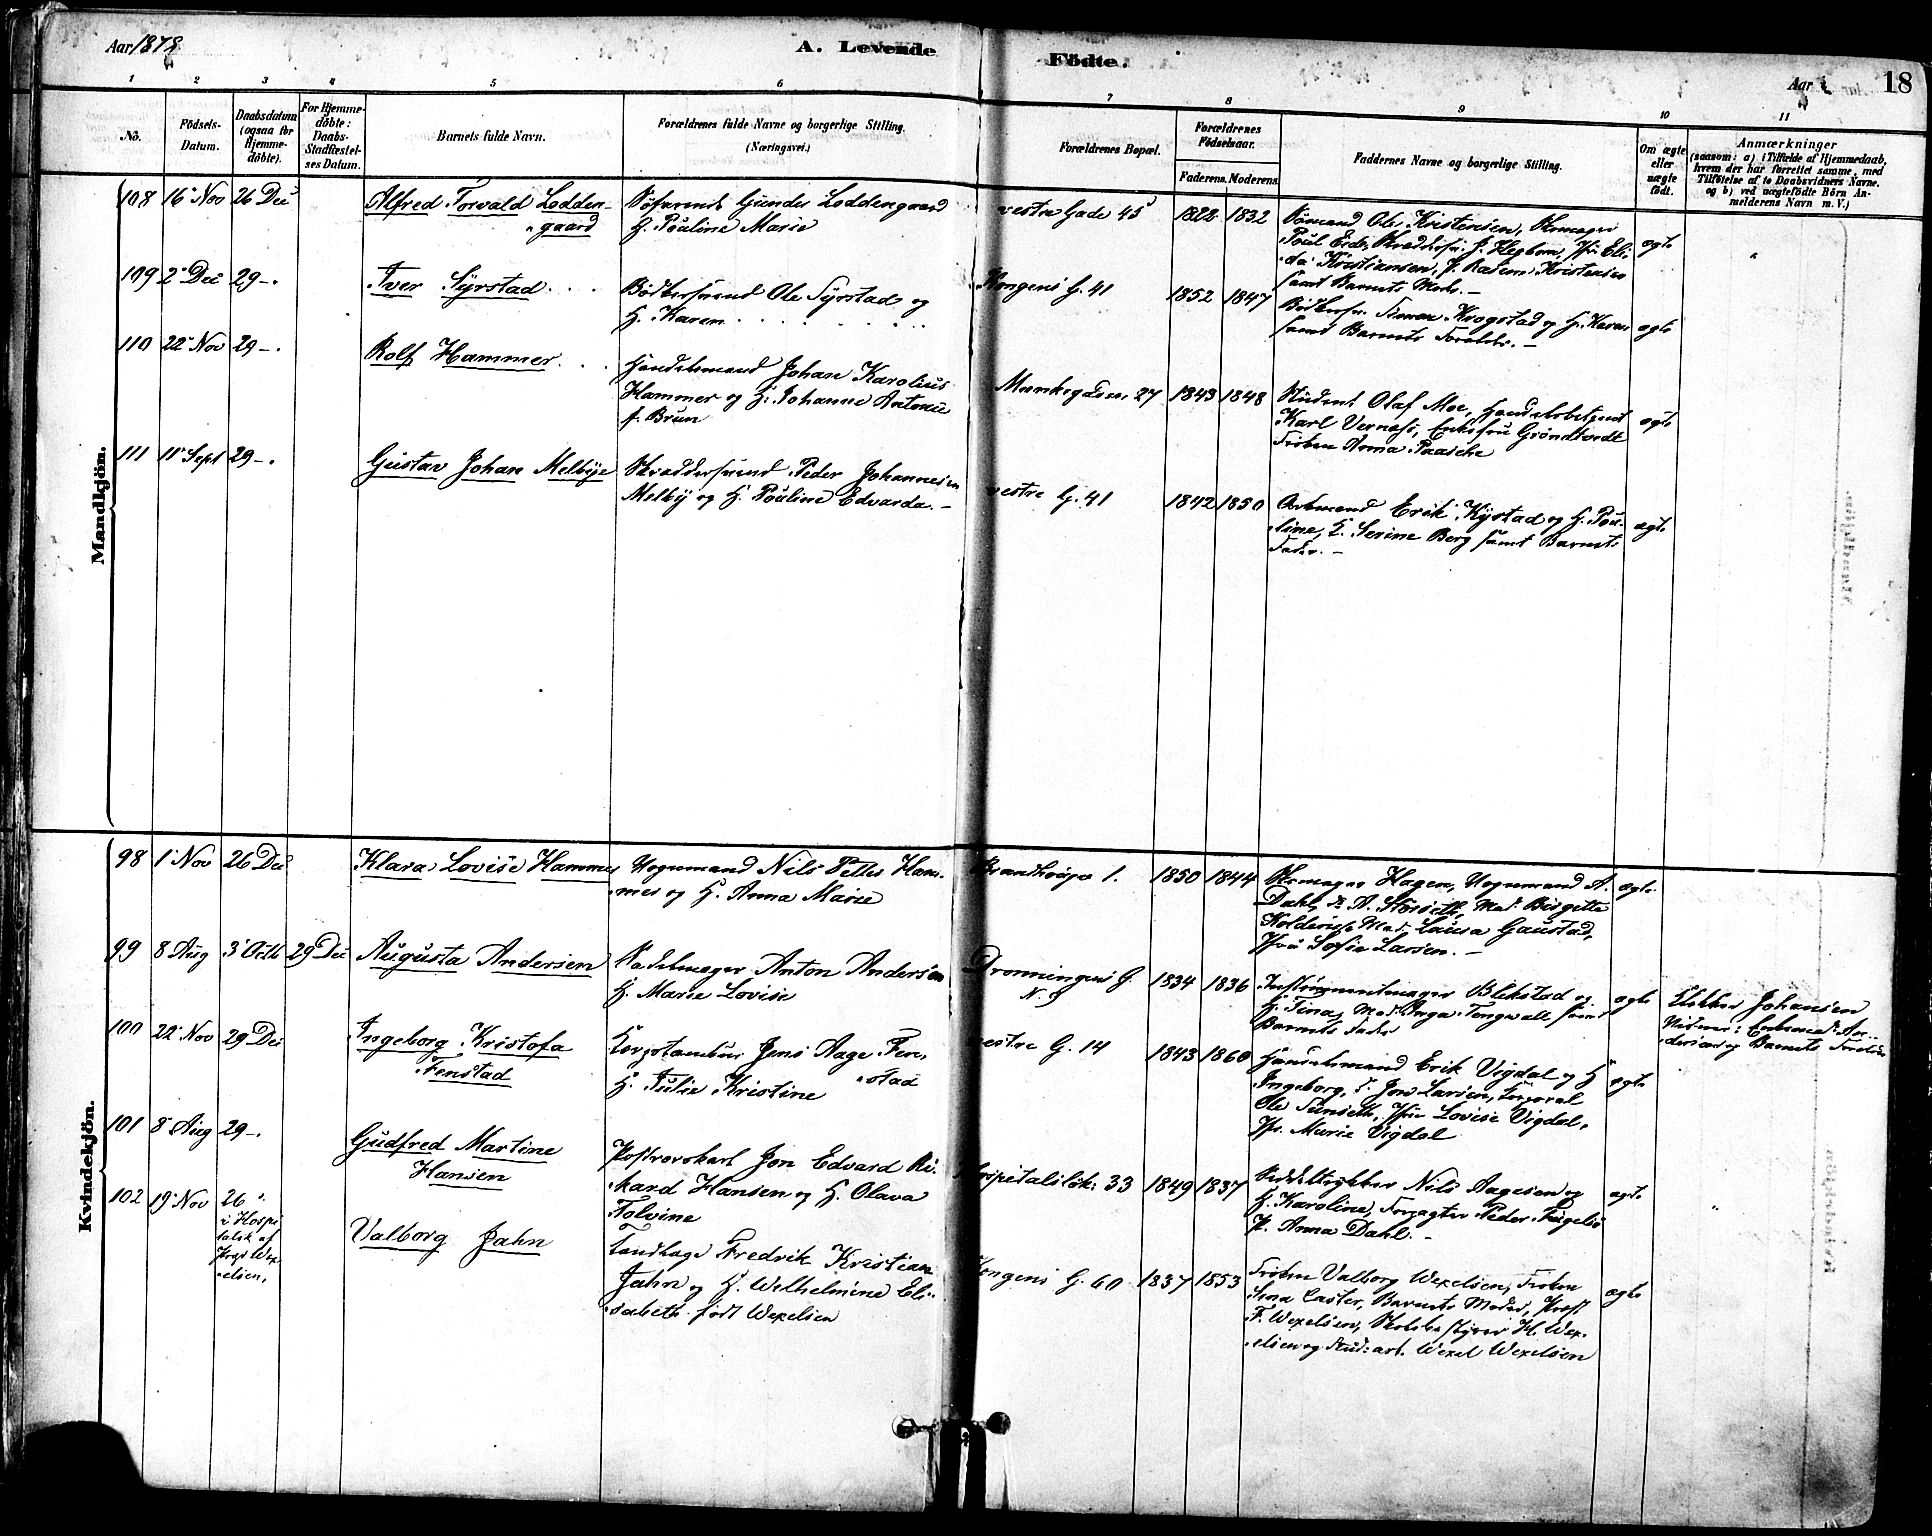 Aar 1878
A. Levende
Födte.
Aar
18
1 2 3 4 5 6 7 8 9 10 11
No.
Födsels-
Datum.
Daabsdatum
(ogsaa for
Hjemme-
döbte).
For Hjemme-
döbte:
Daabs-
Stadfæstel-
ses Datum.
Barnets fulde Navn.
Forældrenes fulde Navne og borgerlige Stilling.
(Næringsvei.)
Forældrenes Bopæl.
Forældrenes
Födselsaar.
Faderens. Moderens.
Faddernes Navne og borgerlige Stilling.
Om ægte
eller
uægte
födt.
Anmærkninger
(saasom: a) i Tilfælde af Hjemmedaab,
hvem der har forrettet samme, med
Tilföielse af to Daabsvidners Navne.
og b) ved uægtefödte Börn An-
melderens Navn m. V.)
Mandkjön.
108 16 Nov 26 Dec
Alfred Torvald Lodden-
gaard
Gunder Loddengaard
H. Pauline Marie
vestre Gade 45
1828 1832
Sömand Ole Kristensen, Skomager
Kristiansen, Kristensen
samt Barnets Moder.
ægte
109 2 Dec 29-.
Iver Syrstad
Bödkersvend Ole Syrstad og
H. Karen
Kongens G. 41
1852 1847
Simon Krogstad og H. Karen
samt Barnets Forældre.
ægte
110 22 Nov 29-.
Rolf Hammer
Handelsmand Johan Karolius
Hammer og H. Johanne Antonie
f. Brun
Munkegaden 27
1843 1848
Student Olaf Moe, Handelsbetjent
Karl Vernæs, Enkefru Gröndtvedt
Fröken Anna Paasche
ægte
111 11 Sept 29-.
Gustav Johan Melbye
Skræddersvend Peder Johannesen
Melby og H. Pauline Edvarda.
vestre G. 41
1842 1850
Arbmand Erik Kystad og H. Pau-
line, Serine Berg samt Barnets
Fader.
ægte
Kvindekjön.
98 1 Nov 26 Dec
Klara Lovise Hammer
Vognmand Nils Petter Ham-
mer og H. Anna Marie
1.
1850 1844
Skomager Hagen, Vognmand A.
Dahl, Mad. Birgitte
Mad. Laura Gaustad,
Jfru Sofie Larsen.
ægte
99 8 Aug 3 Octb 29 Dec
Augusta Andersen
Sadelmager Anton Andersen
H. Marie Lovise
Dronningens G.
N. 9
1834 1836
Instrumentmager Blekstad og
H. Tina, Mad. Inga Tengvall samt
Barnets Fader
ægte
Klokker Johansen
Vidner: Enkemad. An-
dersen og Barnets Forældre
100 22 Nov 29 Dec
Ingeborg Kristofa
Fenstad
Korpstambur Jens Aage Fen-
stad
H. Julie Kristine
vestre G. 14
1843 1860
Handelsmand Erik Vigdal og H
Ingeborg, Jon Larsen, Korporal
Ole Jfr Lovise Vigdal,
Jfr. Marie Vigdal
ægte
101 8 Aug 29-.
Gudfred Martine
Hansen
Jon Edvard Ri-
kard Hansen og H. Olava
Tolvine
33
1849 1837
Nils Aagesen og
H. Karoline, Peder
P. Anna Dahl.
ægte
102 19 Nov 26
i Hospi
talsk af
Præst Wex
elsen.
Valborg Jahn
Tandlæge Fredrik Kristian
Jahn og H. Wilhelmine Eli-
sabeth født Wexelsen
Kongens G. 60
1837 1853
Fröken Valborg Wexelsen, Fröken
Barnets Moder, Præst
F. Wexelsen, Skolebestyrer H. Wex-
elsen og Stud: art. Wexel Wexelsen
ægte